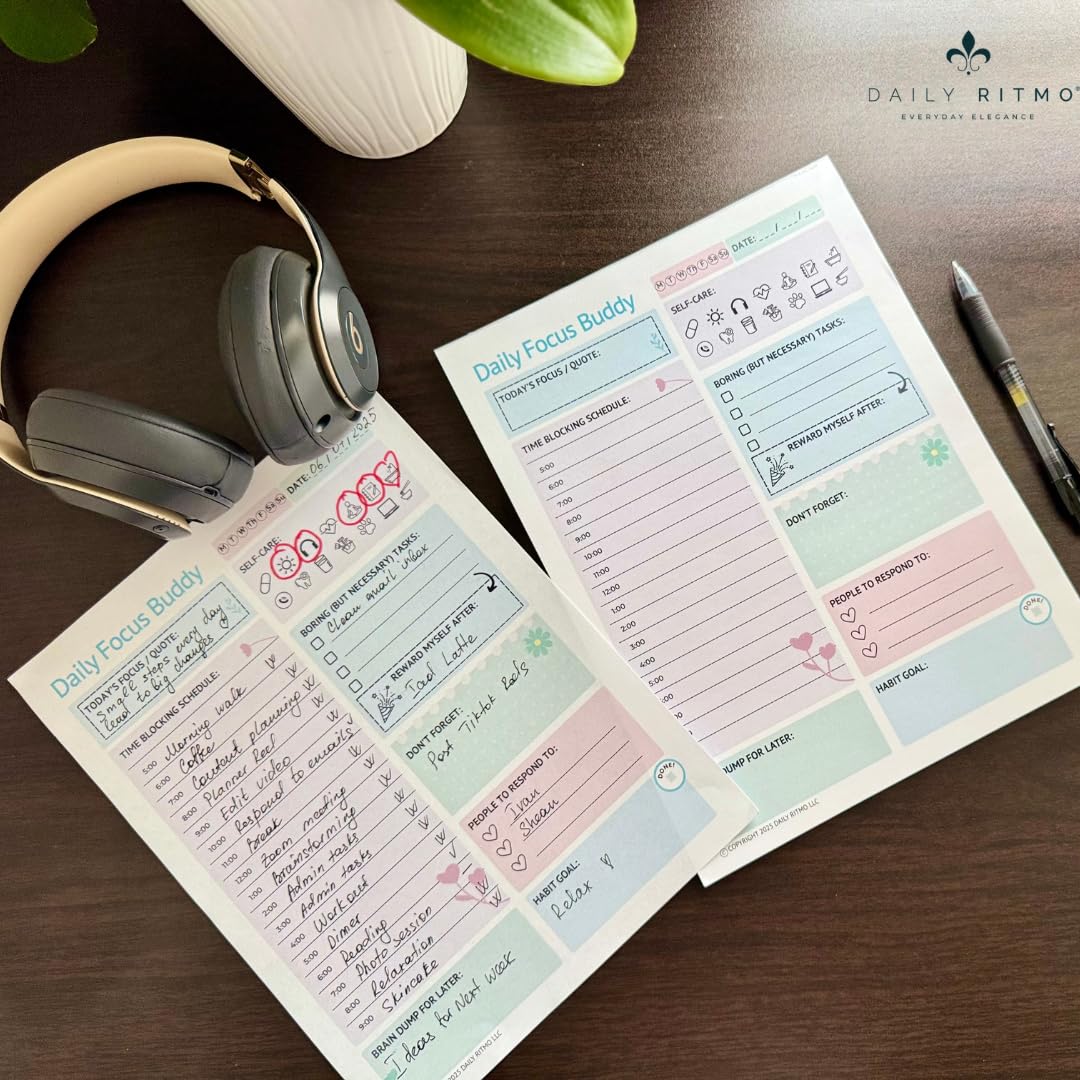 DAILY RITMO®
EVERYDAY ELEGANCE
Daily Focus Buddy
M T W Th F Sa Su
DATE: __/__/__
SELF-CARE:
TODAY'S FOCUS / QUOTE:
TIME BLOCKING SCHEDULE:
5:00
6:00
7:00
8:00
9:00
10:00
11:00
12:00
1:00
2:00
3:00
4:00
5:00
BORING (BUT NECESSARY) TASKS:
REWARD MYSELF AFTER:
DON'T FORGET:
PEOPLE TO RESPOND TO:
DONE!
HABIT GOAL:
DUMP FOR LATER:
© COPYRIGHT 2025 DAILY RITMO LLC
b
Daily Focus Buddy
M T W Th F Sa Su
DATE: 06/07/2025
SELF-CARE:
TODAY'S FOCUS / QUOTE:
Small steps every day
lead to big changes
TIME BLOCKING SCHEDULE:
5:00 Morning walk
6:00 Coffee
7:00 Countent planning
8:00 Planner Reel
9:00 Edit video
10:00 Respond to emails
11:00 Break
12:00 Zoom meeting
1:00 Brainstorming
2:00 Admin tasks
3:00 Admin tasks
4:00 Workout
5:00 Dinner
6:00 Reading
7:00 Photo session
8:00 Relaxation
9:00 Skincare
BORING (BUT NECESSARY) TASKS:
Clean email inbox
REWARD MYSELF AFTER:
Iced Latte
DON'T FORGET:
Post Tiktok Reels
PEOPLE TO RESPOND TO:
Ivan
Shean
DONE!
HABIT GOAL:
Relax
BRAIN DUMP FOR LATER:
Ideas for Next Week
2025 DAILY RITMO LLC